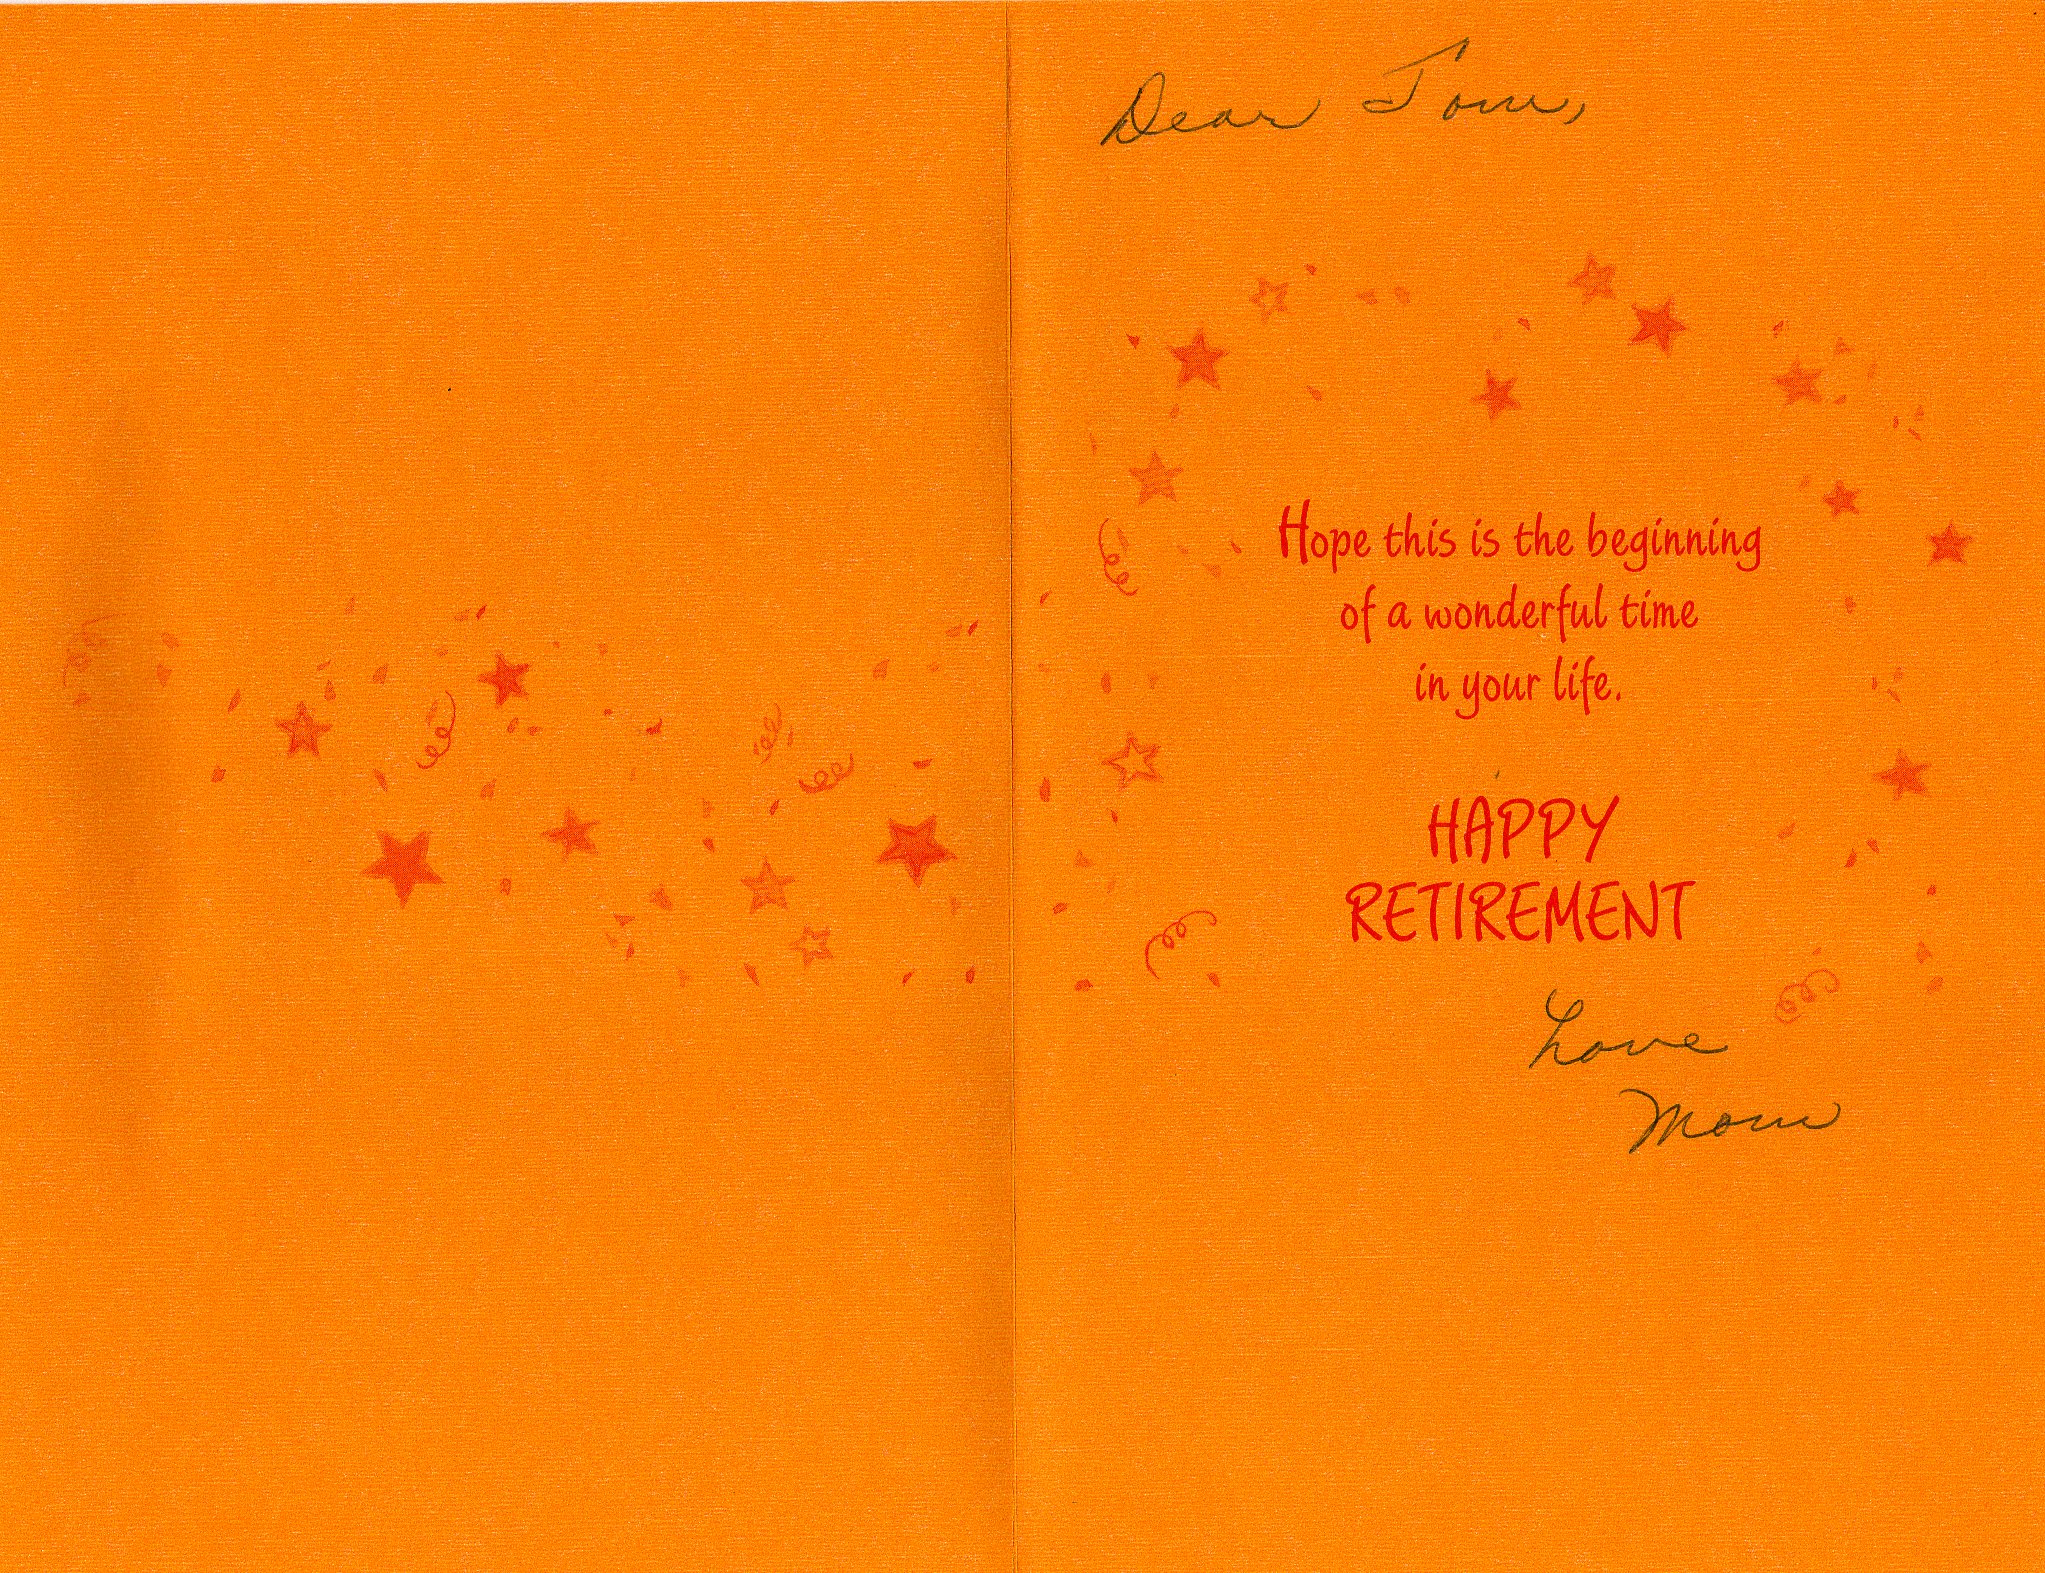 Dear Tom,
Hope this is the beginning
of a wonderful time
in your life.
HAPPY
RETIREMENT
Love
Mom